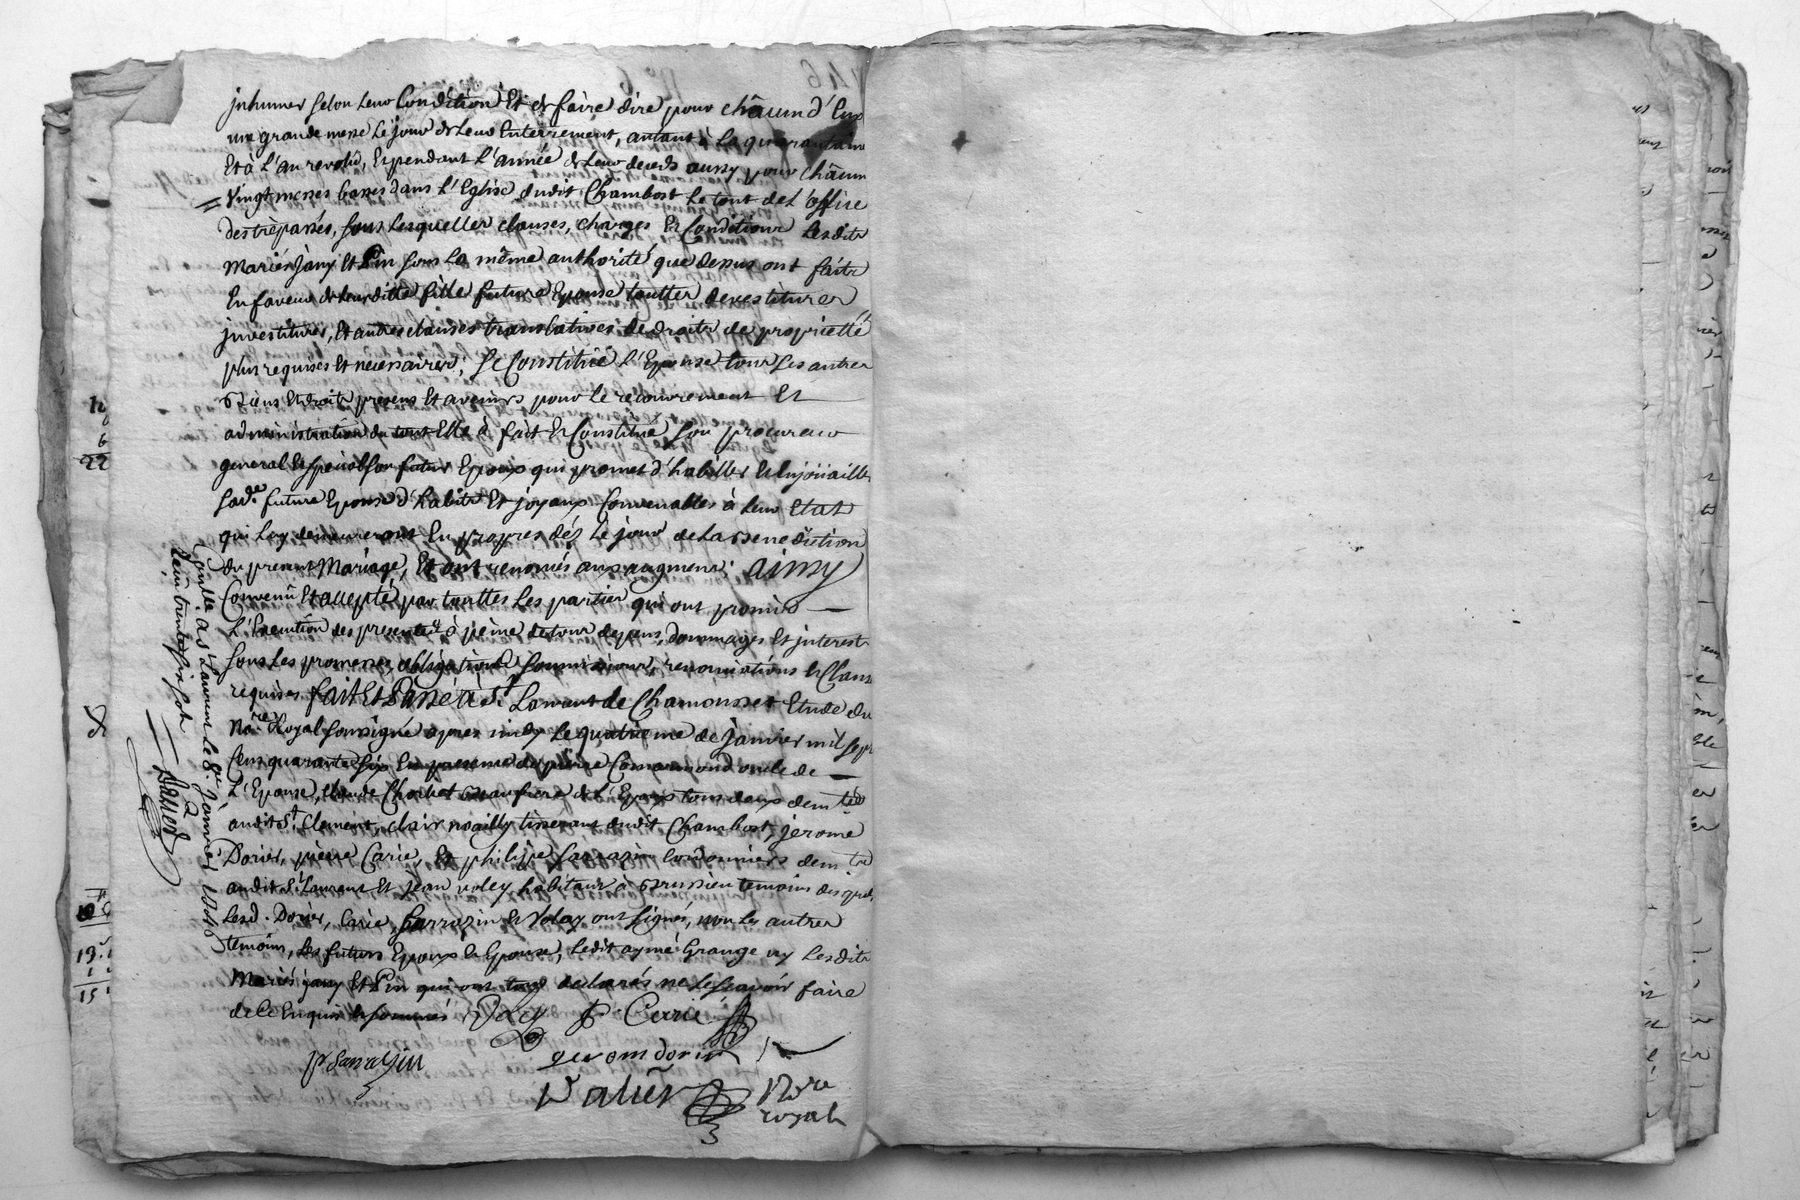 jnhumer selon leur Condition Et de faire dire pour châcun d'Eux
une grande messe le jour de leur Enterrement, autant à la quarantaine
Et à l'an revolû, Et pendant l'année de leur deceds aussy pour châcun
Vingt messes basses dans l'Eglise dudit Chambost le tout de l'office
des trépassés, sous lesquelles clauses, charges Et Conditions lesdits
Mariés jany Et Pin sous la même authorité que dessus ont faits
En faveur de leurditte fille future Epouse touttes devestitures
jnvestitures, Et autres clauses translatives de droits de proprietté
plus requises Et necessaires; se Constitüe l'Epouse tous les autres
Biens Et droits presens Et avenirs pour le recouvrement Et
administration du tout Elle à fait Et Constitüé son procureur
general Et special son futur Epoux qui promet d'habiller Et Enjoüailler
sad.e future Epouse d'habits Et joyaux Convenables à leur Etat
qui luy demeureront En propres dés le jour de la Benediction
du present Mariage, Et ont renoncés aux augmens; ainsy
Convenû Et accepté par touttes les parties qui ont promis
l'Execution des presentes à peine de tous depens, dommages Et jnterests
sous les promesses, obligations soumissions, renonciations Et Clauses
requises fait Et Passé à St. Laurent de Chamousset Etude du
No.re Royal soussigné apres midy le quatrieme de janvier mil sept
Cens quarante six En presence de pierre Comarmond oncle de
l'Epouse, Claude Chorbet Beaufrere de l'Epoux tous deux dem.ts
audit St. Clement, clair noailly tisserant dudit Chambost, jerome
Dorier, pierre Carie, Et philippe sarrazin cordonniers dem.ts
audit St. Laurent Et jean voley habitant à Brussieu temoins
lesd. Dorier, Carie, sarrazin Et Voley ont signés, non les autres
temoins, les futurs Epoux Et Epouse, ledit aymé Grange ny lesdits
Mariés jany Et Pin qui ont tous declarés ne le sçavoir faire
de Ce Enquis Et sommés Voley P Carrié
p sarrazin gerome dorier
Valier No.re
royal
Conllé à St Laurent le 8.e janvier 1746
Valier